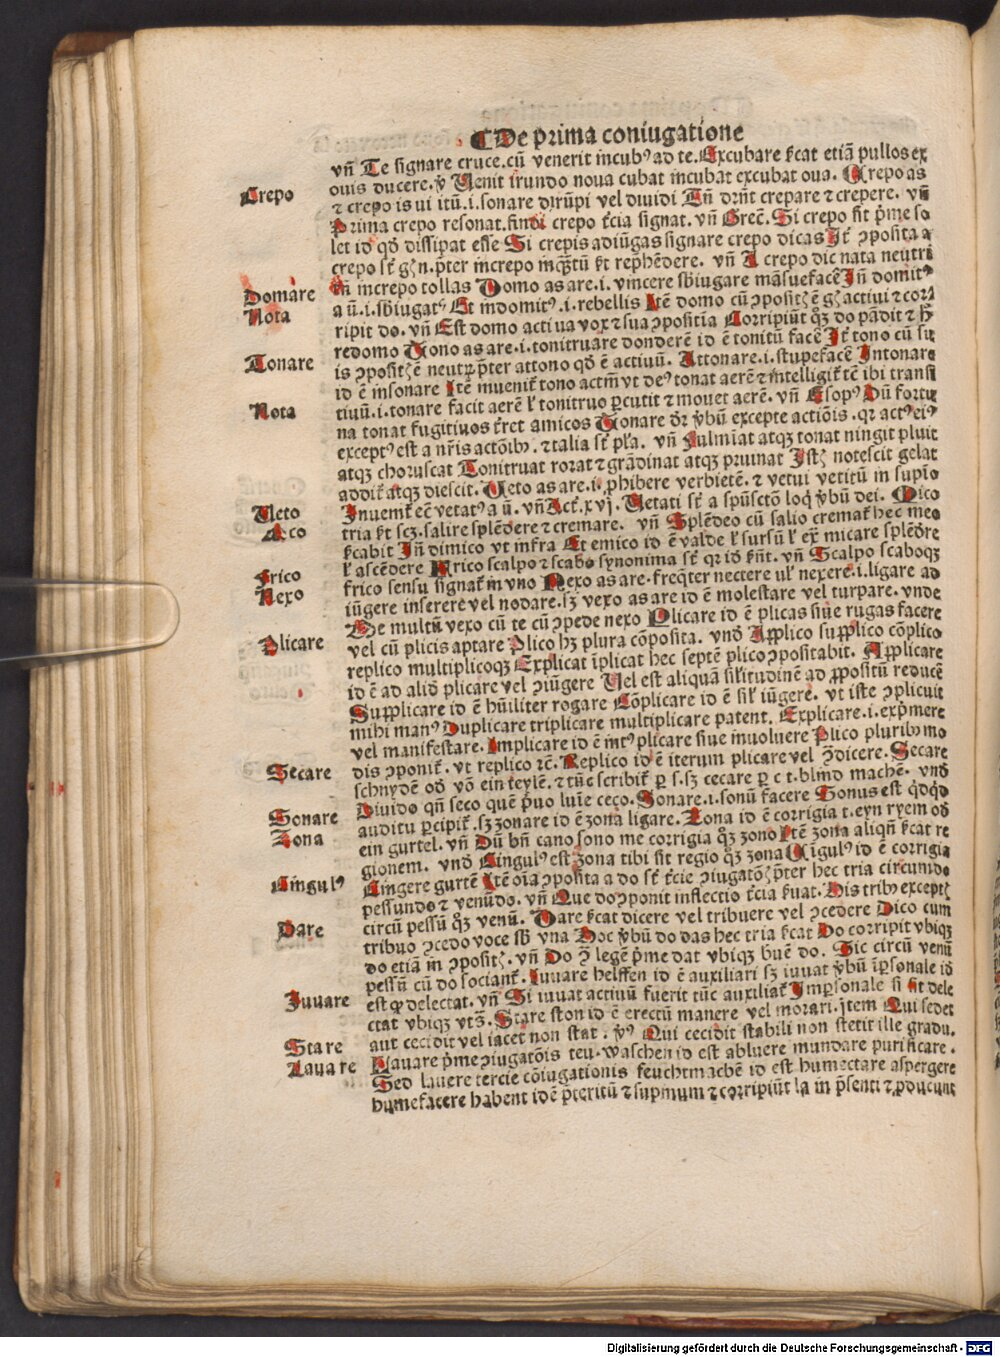 De prima coniugatione
vñ Te signare cruce.cũ venerit incubꝰ ad te. Excubare ẜcat etiã pullos ex
ouis ducere. ꝟ Uenit irundo noua cubat incubat excubat oua. Crepo as
Crepo
ꞇ crepo is ui itũ.i.sonare dirũpi vel diuidi Tñ dr̃nt crepare ꞇ crepere. vñ
Prima crepo resonat.findi crepo t̃cia signat. vñ Grec̃. Si crepo sit p̃me so
let id qd̃ dissipat esse Si crepis adiũgas signare crepo dicas It̃ ꝯposita a
crepo st̃ gñ.p̃ter increpo inq̃tũ ẜt rep̃hẽdere. vñ A crepo dic nata neutri
ẜñ increpo tollas Domo as are.i. vincere sb̃iugare mãsuefacẽ Iñ domitꝰ
Domare
a ũ.i.sb̃iugatꝰ Et indomitꝰ.i.rebellis Itẽ domo cũ ꝯpositꝭ ẽ gñ actiui ꞇ cor
Nota
ripit do. vñ Est domo actiua vox ꞇ sua ꝯpositia Corripiũt qꝫ do pãdit ꞇ h̃
redomo Tono as are.i.tonitruare donderẽ id ẽ tonitũ facẽ It̃ tono cũ su
Tonare
is ꝯpositꝭ ẽ neutꝝ p̃ter attono qd̃ ẽ actiuũ. Attonare.i.stupefacẽ Intonare
id ẽ insonare Itẽ inuenit᷑ tono actiũ vt deꝰ tonat aerẽ ꞇ intelligit᷑ tẽ ibi transi
Nota
tiuũ.i.tonare facit aerẽ l᷑ tonitruo ꝑcutit ꞇ mouet aerẽ. vñ Esopꝰ Dũ fortu
na tonat fugitiuos t̃ret amicos Tonare dr̃ v̓bũ excepte actiõis.qr actꝰ eiꝰ
exceptꝰ est a nr̃is actõibꝰ.ꞇ talia st̃ pl̃a. vñ Fulmĩat atqꝫ tonat ningit pluit
atqꝫ choruscat Tonitruat rorat ꞇ grãdinat atqꝫ pruinat Istꝭ notescit gelat
addit᷑ atqꝫ diescit. Ueto as are.i.ꝓhibere verbietẽ.ꞇ vetui vetitũ in supĩo
Ueto
Inuenit᷑ eẽ vetatꝰ a ũ. vñ Act̃.xvj. Uetati st̃ a spũsctõ loq̃ v̓bũ dei. Mico
Mico
tria ẜt scꝫ.salire splẽdere ꞇ cremare. vñ Splẽdeo cũ salio cremat᷑ hec meo
ẜcabit Iñ dimico vt infra Et emico id ẽ valde l᷑ sursũ l᷑ ex̃ micare splẽdre
l᷑ ascẽdere Frico scalpo ꞇ scabo synonima st̃ qr id ẜñt. vñ Scalpo scaboqꝫ
Frico
frico sensu signat᷑ in vno Nexo as are.freq̃ter nectere ul᷑ nexere.i.ligare ad
Nexo
iũgere inserere vel nodare.sꝫ vexo as are id ẽ molestare vel turpare. vnde
Me multũ vexo cũ te cũ ꝯpede nexo Plicare id ẽ plicas siue rugas facere
Plicare
vel cũ plicis aptare Plico hꝫ plura cõposita. vnd̃ Applico supplico cõplico
replico multiplicoqꝫ Explicat ĩplicat hec septẽ plico ꝯpositabit. Applicare
id ẽ ad aliđ plicare vel ꝯiũgere Uel est aliquã sil᷑itudinẽ ad ꝓpositũ reducẽ
Supplicare id ẽ hũiliter rogare Cõplicare id ẽ sil᷑ iũgere. vt iste ꝯplicuit
mihi manꝰ Duplicare triplicare multiplicare patent. Explicare.i.exp̃mere
vel manifestare. Implicare id ẽ int̃ꝰ plicare siue inuoluere Plico pluribꝰ mo
dis ꝯponit᷑. vt replico rc̃. Replico id ẽ iterum plicare vel ꝯ̃dicere. Secare
Secare
schnydẽ od̃ võ ein teylẽ. ꞇ tũc scribit᷑ ꝑ s.sꝫ cecare ꝑ c t.blind machẽ. vnđ
Diuido qñ seco quẽ p̃uo luĩe ceco. Sonare.i.sonũ facere Sonus est qđqđ
Sonare
auditu ꝑcipit᷑.sꝫ zonare id ẽ zona ligare. Zona id ẽ corrigia t.eyn ryem od̃
Zona
ein gurtel. vñ Dũ bñ cano sono me corrigia qꝫ zono Itẽ zona aliqñ ẜcat re
gionem. vnđ Cingulꝰ est zona tibi sit regio qꝫ zona Cĩgulꝰ id ẽ corrigia
Cingulꝰ
Cingere gurtẽ Itẽ oĩa ꝯposita a do st̃ t̃cie ꝯiugatõꝭ p̃ter hec tria circundo
pessundo ꞇ venũdo. vñ Que do ꝯponit inflectio t̃cia ẜuat. His tribꝰ exceptꝭ
circũ pessũ qꝫ venũ. Dare ẜcat dicere vel tribuere vel ꝯcedere Dico cum
Dare
tribuo ꝯcedo voce sb̃ vna Hoc v̓bũ do das hec tria ẜcat Do corripit vbiqꝫ
do etiã in ꝯpositꝭ. vñ Do ꝑ legẽ p̃me dat vbiqꝫ buẽ do. Sic circũ venũ
pessũ cũ do sociant᷑. Iuuare helffen id ẽ auxiliari sꝫ iuuat v̓bũ ĩꝑsonale id
Iuuare
est ꝙ delectat. vñ Si iuuat actiuũ fuerit tũc auxiliat᷑ Imꝑsonale si sit dele
ctat vbiqꝫ vt3̃. Stare ston id ẽ erectũ manere vel morari.jtem Qui sedet
Stare
aut cecidit vel iacet non stat. ꝟꝰ Qui cecidit stabili non stetit ille gradu.
Lauare
Lauare p̃me ꝯiugatõis teu.waschen id est abluere mundare purificare.
Sed lauere tercie cõiugationis feuchtmachẽ id est humectare aspergere
humefacere habent idẽ p̃teritũ ꞇ supinum ꞇ corripiũt la in p̃senti ꞇ ꝓducunt
Digitalisierung gefördert durch die Deutsche Forschungsgemeinschaft - DFG